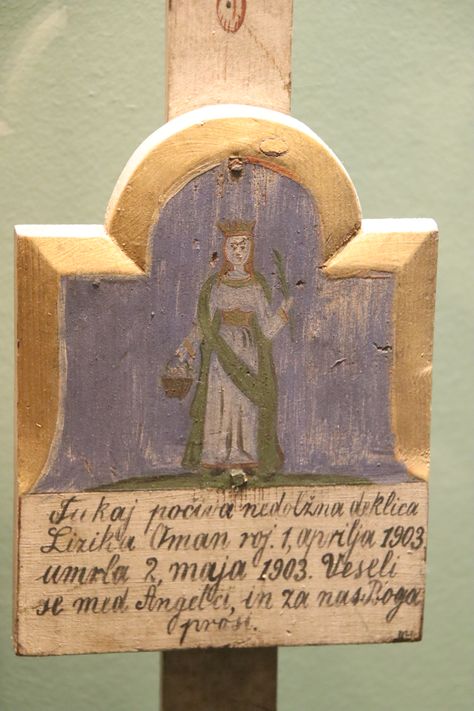 Tukaj počiva nedolžna deklica
Lizika Oman roj. 1, aprilja 1903
umrla 2, maja 1903. Veseli
se med Angelci, in za nas Boga
prosi.